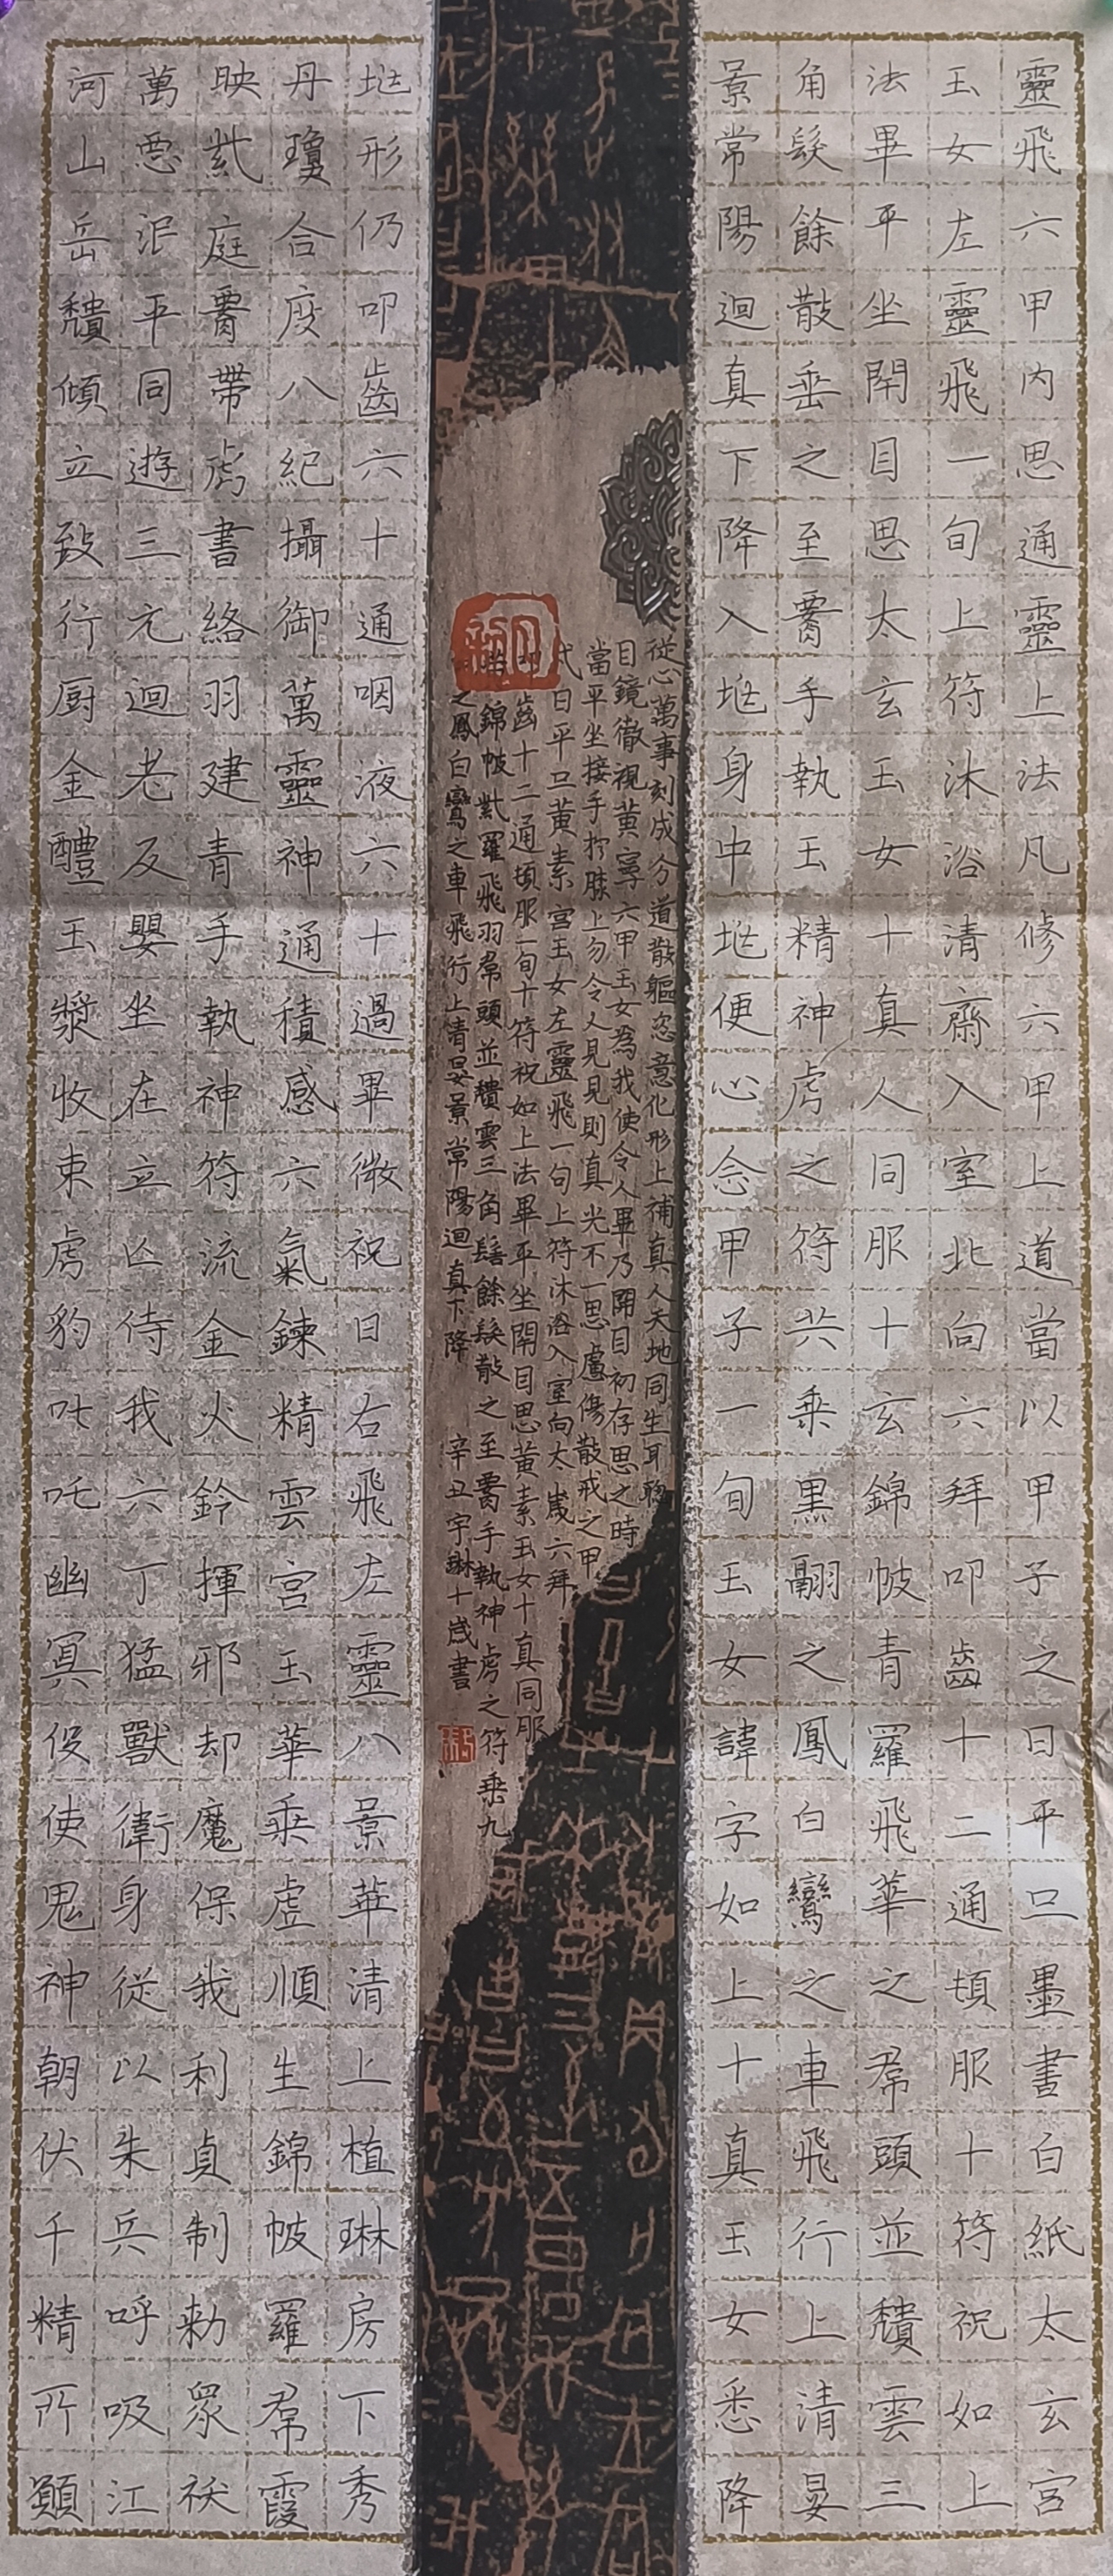 靈飛六甲内思通靈上法凡修六甲上道當以甲子之日平旦墨書白紙太玄宫
玉女左靈飛一旬上符沐浴清齋入室北向六拜叩齒十二通頓服十符祝如上
法畢平坐閇目思太玄玉女十真人同服十玄錦帔青羅飛華之帬頭並穨雲三
角髮餘散垂之至䙅手執玉精神虎之符共乘黑翮之鳳白鸞之車飛行上清晏
景常陽迴真下降入埊身中埊便心念甲子一旬玉女諱字如上十真玉女悉降
從心萬事刻成分道散軀恣意化形上補真人天地同生耳聰
目鏡徹視黄寧六甲玉女為我使令人畢乃開目初存思之時
當平坐接手於膝上勿令人見見則真光不一思慮傷散戒之甲
戌日平旦黄素宫玉女左靈飛一旬上符沐浴入室向太歲六拜
叩齒十二通頓服一旬十符祝如上法畢平坐閇目思黄素玉女十真同服
錦帔紫羅飛羽帬頭並穨雲三角髻餘髮散之至䙅手執神虎之符乘九
之鳳白鸞之車飛行上清晏景常陽迴真下降 辛丑宇琳十歲書
埊形仍叩齒六十通咽液六十過畢微祝曰右飛左靈八景華清上植琳房下秀
丹瓊合度八紀攝御萬靈神通積感六氣鍊精雲宫玉華乘虚順生錦帔羅帬霞
映紫庭䙅帶虎書絡羽建青手執神符流金火鈴揮邪却魔保我利貞制勅衆祅
萬惡泯平同遊三元迴老反嬰坐在立亾侍我六丁猛獸衛身從以朱兵呼吸江
河山岳穨傾立致行厨金醴玉漿收束虎豹叱吒幽冥役使鬼神朝伏千精所願